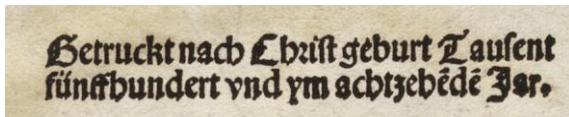 Getruckt nach Christ geburt Tausent
fünffhundert vnd ym achtzehēdē Jar.